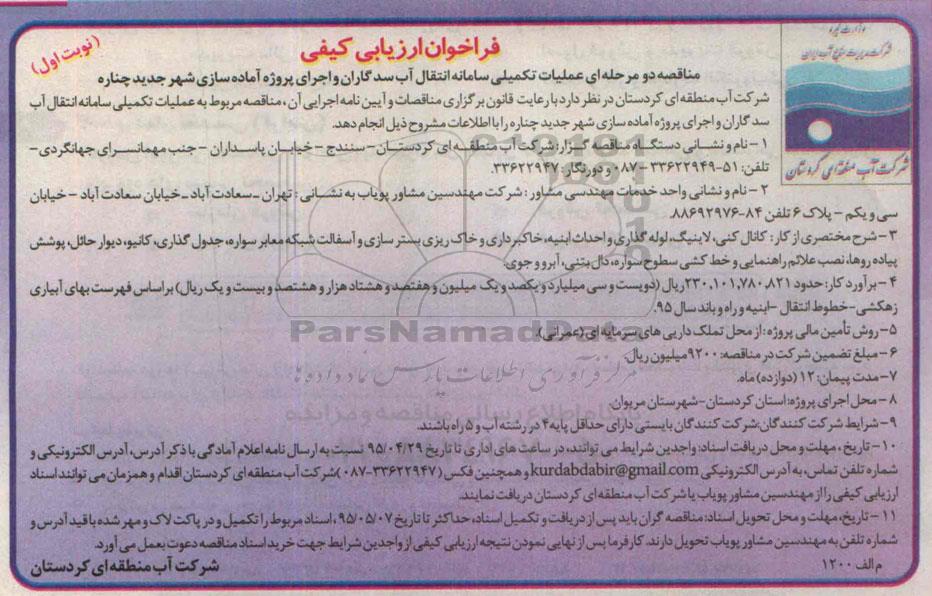 فراخوان ارزیابی کیفی
(نوبت اول)
مناقصه دو مرحله ای عملیات تکمیلی سامانه انتقال آب سد گاران و اجرای پروژه آماده سازی شهر جدید چناره
شرکت آب منطقه ای کردستان در نظر دارد با رعایت قانون برگزاری مناقصات و آیین نامه اجرایی آن ، مناقصه مربوط به عملیات تکمیلی سامانه انتقال آب
سد گاران و اجرای پروژه آماده سازی شهر جدید چناره را با اطلاعات مشروح ذیل انجام دهد.
۱- نام و نشانی دستگاه مناقصه گزار: شرکت آب منطقه ای کردستان - سنندج - خیابان پاسداران - جنب مهمانسرای جهانگردی -
تلفن: ۵۱-۳۳۶۲۲۹۴۹-۰۸۷ و دورنگار: ۳۳۶۲۲۹۴۷.
۲- نام و نشانی واحد خدمات مهندسی مشاور : شرکت مهندسین مشاور پویاب به نشانی : تهران - سعادت آباد - خیابان سعادت آباد - خیابان
سی و یکم - پلاک ۶ تلفن ۸۴-۸۸۶۹۲۹۷۶.
۳- شرح مختصری از کار : کانال کنی، لاینینگ، لوله گذاری و احداث ابنیه، خاکبرداری و خاک ریزی بستر سازی و آسفالت شبکه معابر سواره، جدول گذاری، کانیو، دیوار حائل، پوشش
پیاده روها، نصب علائم راهنمایی و خط کشی سطوح سواره، دال بتنی، آبرو و جوی.
۴- برآورد کار: حدود ۲۳۰,۱۰۱,۷۸۰,۸۲۱ ریال (دویست و سی میلیارد و یکصد و یک میلیون و هفتصد و هشتاد هزار و هشتصد و بیست و یک ریال) براساس فهرست بهای آبیاری
زهکشی - خطوط انتقال - ابنیه و راه و باند سال ۹۵.
۵- روش تأمین مالی پروژه : از محل تملک دارایی های سرمایه ای (عمرانی).
۶- مبلغ تضمین شرکت در مناقصه: ۹۲۰۰ میلیون ریال.
۷- مدت پیمان: ۱۲ (دوازده) ماه.
۸- محل اجرای پروژه: استان کردستان - شهرستان مریوان.
۹- شرایط شرکت کنندگان: شرکت کنندگان بایستی دارای حداقل پایه ۴ در رشته آب و ۵ راه باشند.
۱۰- تاریخ، مهلت و محل دریافت اسناد: واجدین شرایط می توانند، در ساعت های اداری تا تاریخ ۹۵/۰۴/۲۹ نسبت به ارسال نامه اعلام آمادگی با ذکر آدرس، آدرس الکترونیکی و
شماره تلفن تماس، به آدرس الکترونیکی kurdabdabir@gmail.com و همچنین فکس (۳۳۶۲۲۹۴۷-۰۸۷) شرکت آب منطقه ای کردستان اقدام و همزمان می توانند اسناد
ارزیابی کیفی را از مهندسین مشاور پویاب یا شرکت آب منطقه ای کردستان دریافت نمایند.
۱۱- تاریخ، مهلت و محل تحویل اسناد: مناقصه گران باید پس از دریافت و تکمیل اسناد، حداکثر تا تاریخ ۹۵/۰۵/۰۷، اسناد مربوط را تکمیل و در پاکت لاک و مهر شده با قید آدرس و
شماره تلفن به مهندسین مشاور پویاب تحویل دارند. کارفرما پس از نهایی نمودن نتیجه ارزیابی کیفی از واجدین شرایط جهت خرید اسناد مناقصه دعوت بعمل می آورد.
م الف ۱۲۰۰
شرکت آب منطقه ای کردستان
شرکت مدیریت منابع آب ایران
شرکت آب منطقه ای کردستان
ParsNamadData
مرکز فرآوری اطلاعات پارس نماد داده ها